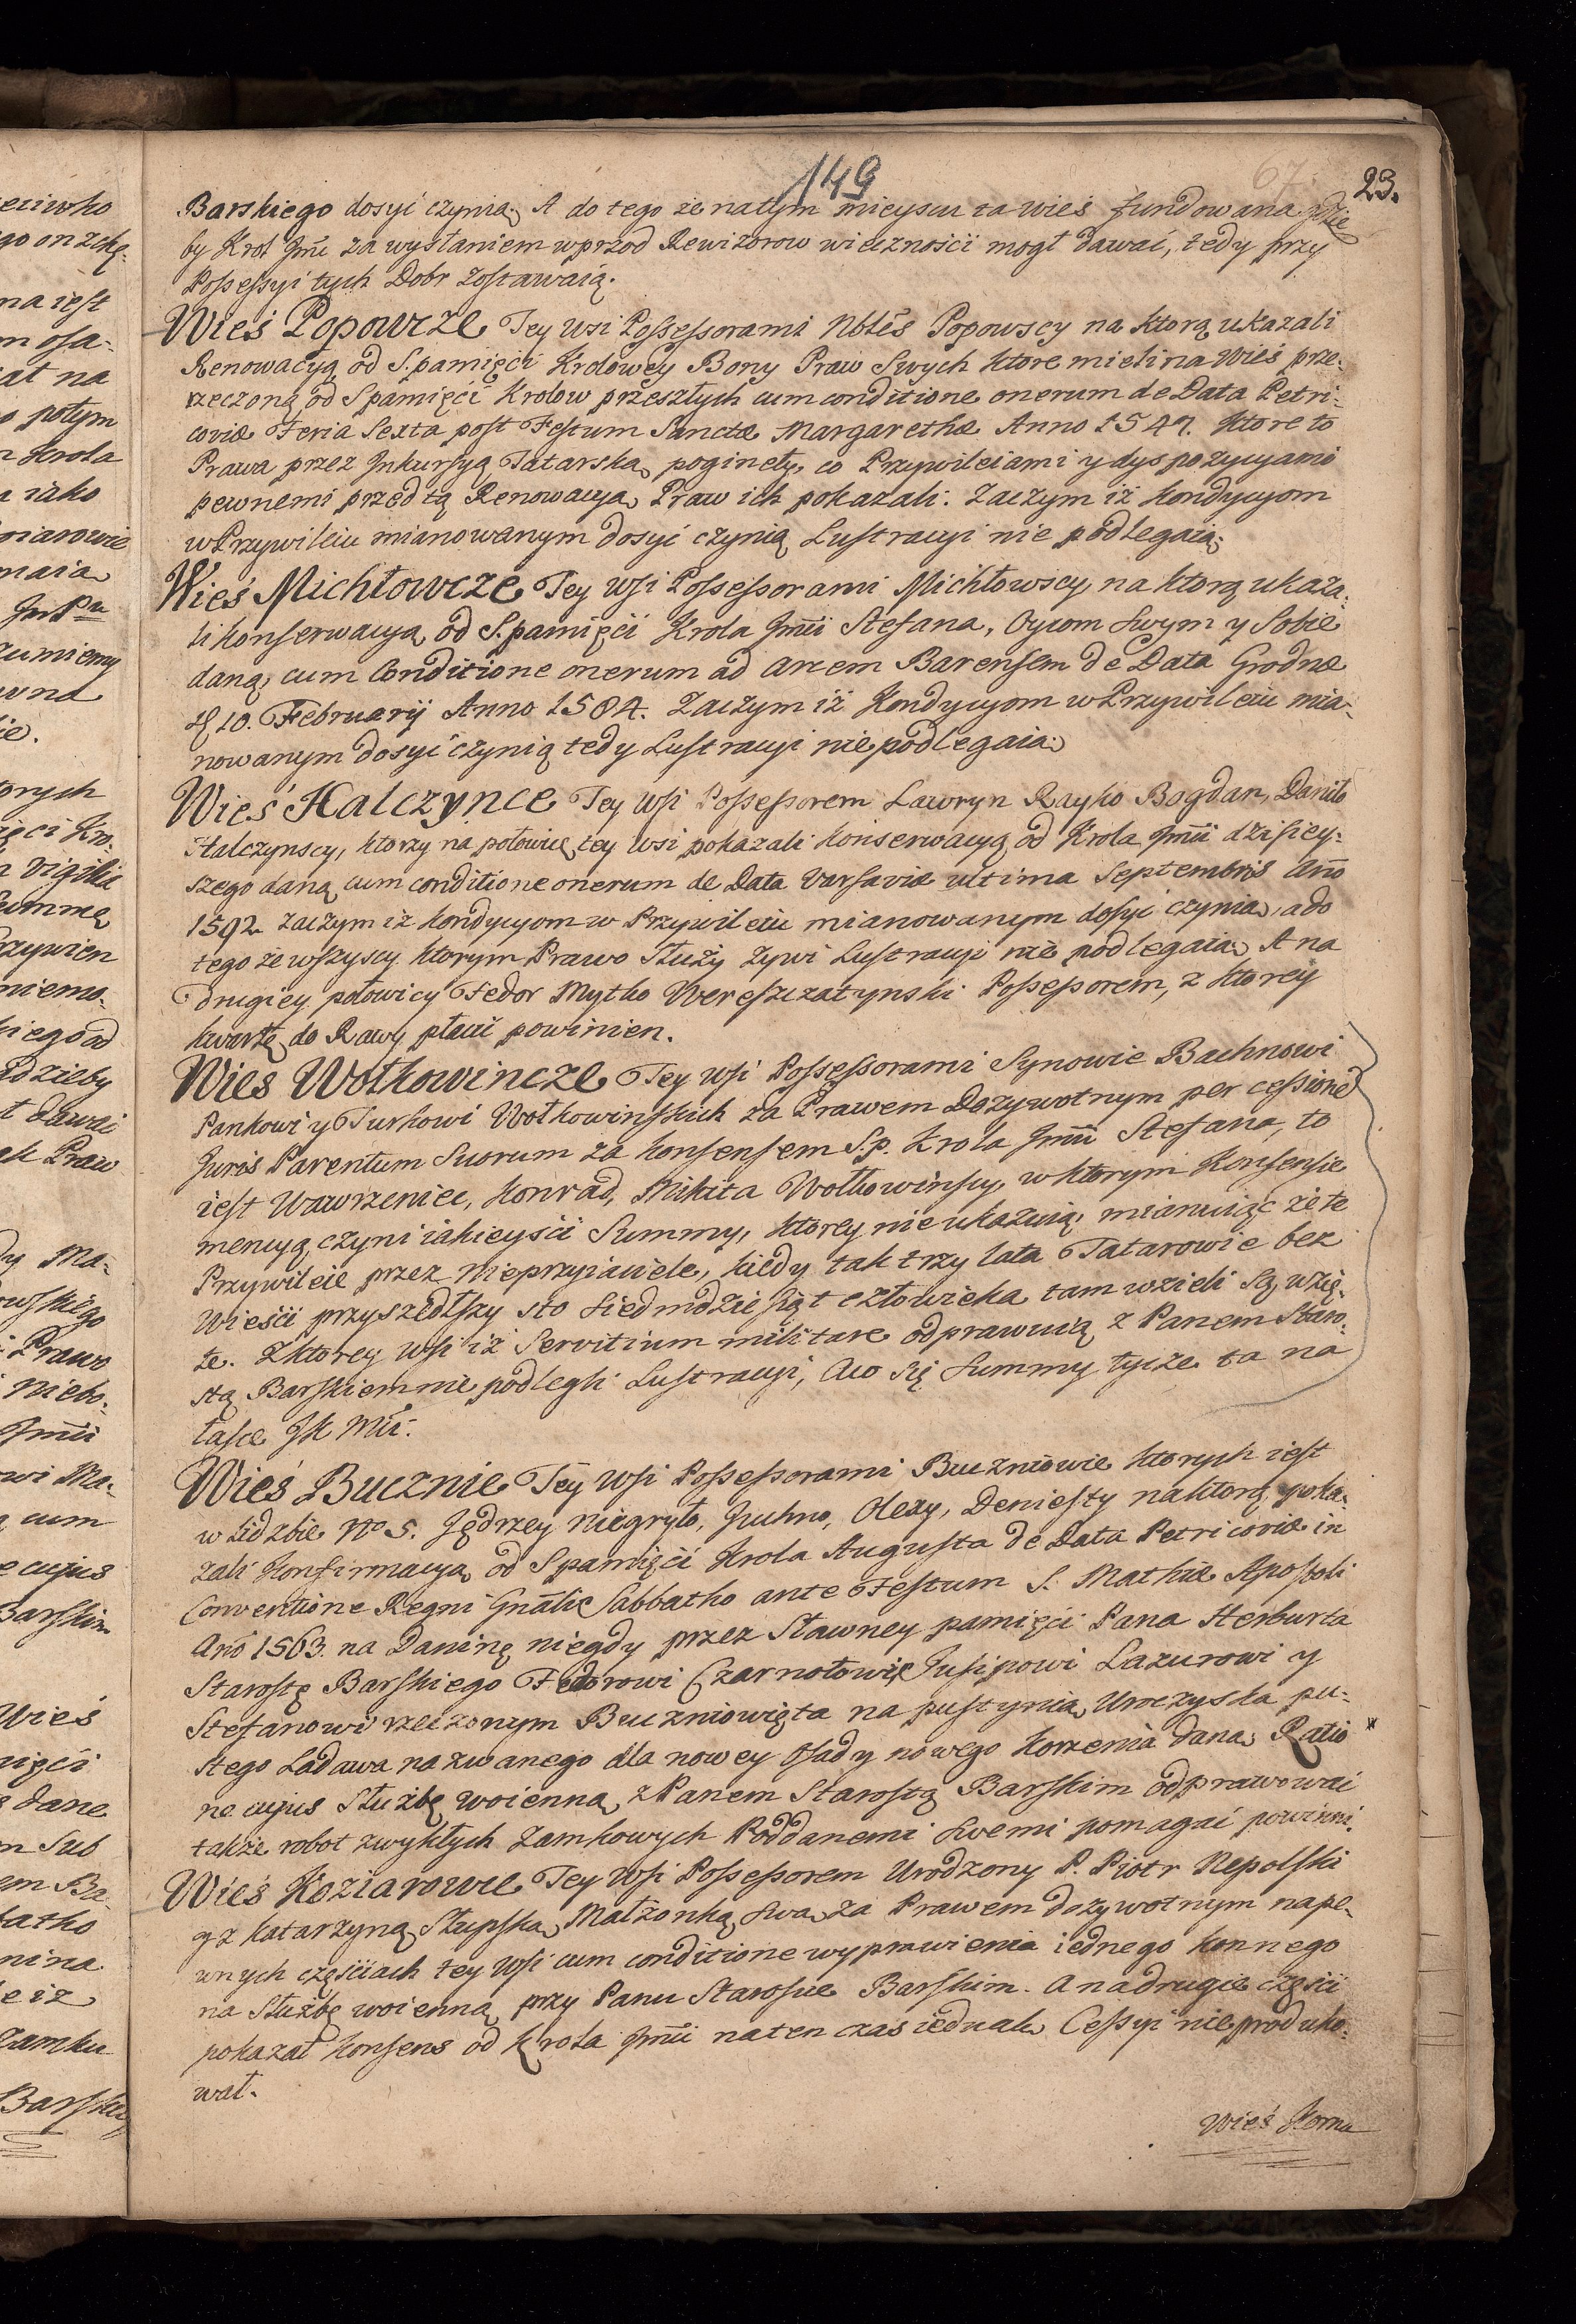 149
67
23.
Barskiego dosyć czynią. A do tego że na tym mieyscu ta wieś fundowana gdzie
by Krol Jmć za wysłaniem wprzod Rewizorow wieczności mogł dawać, tedy przy
Possessyi tych Dobr zostawaią.
Wieś Popowcze Tey wsi Possessorami Nbles Popowscy na ktorą ukazali
Renowacyą od S. pamięci Krolowey Bony Praw Swych ktore mieli na Wieś prze-
rzeczoną od S pamięci Krolow przeszłych cum conditione onerum de Data Petri-
coviæ Feria Sexta post Festum Sanctæ Margarethæ Anno 1547. Ktore to
Prawa przez Jnkursyą Tatarską poginęły, co Przywileiami y dyspozycyami
pewnemi przed tą Renowacyą Praw ich pokazali. Zaczym iż kondycyom
w Przywileiu mianowanym dosyć czynią Lustracyi nie podlegaią.
Wieś Michłowcze Tey wsi Possessorami Michłowscy, na ktorą ukaza-
li konserwacyą od S. pamięci Krola Jmći Stefana, Oycom Swym y Sobie
daną, cum Conditione onerum ad arcem Barensem de Data Grodnæ
10. Februarij Anno 1584. Zaczym iż Kondycyom w Przywileiu mia-
nowanym dosyć czynią tedy Lustracyi nie podlegaią
Wieś Halczynce Tey wsi Possessorem Lawryn Rayko Bogdan, Daniło
Halczynscy, ktorzy na połowicę tey wsi pokazali konserwacyą od Krola Jmći dzisiey-
szego daną cum conditione onerum de Data Varsaviæ ultima Septembris Año
1592 zaczym iż kondycyom w Przywileiu mianowanym dosyć czynią, a do
tego że wszyscy ktorym Prawo Służy żywi Lustracyi nie podlegaią A na
drugiey połowicy Fedor Mytko Wereszczatynski Possessorem, z ktorey
kwartę do Rawy płacić powinien.
Wieś Wołkowincze Tey wsi Possessorami Synowie Bachnowi
Pankowi y Turkowi Wołkowinskich za Prawem Dożywotnym per cessione
Juris Parentum Suorum za konsensem S.p. Krola Jmći Stefana, to
iest Wawrzeniec, Konrad, Mikita Wołkowinscy, w ktorym Konsensie
mencyą czyni iakieyści Summy, ktorey nie ukazuią, mianuiąc że te
Przywileie przez nieprzyiaciele, kiedy tak trzy lata Tatarowie bez
Wieści przyszedłszy sto siedmdziesiąt człowieka tam wzieli są wzię-
te. Z ktorey wsi iż Servitium militare odprawuią z Panem Staro-
stą Barskiem nie podlegli Lustracyi, a co się Summy tycze ta na
łasce JK Mći.
Wieś Bucznie Tey wsi Possessorami Buczniowie ktorych iest
w Lidzbie No 5. Jędrzey Niegryło, Juchno, Olexy, Deniesty na ktorą poka-
zali Konfirmacyą od S pamięci Krola Augusta de Data Petricoviæ in
Conventione Regni Gnâli Sabbatho ante Festum S. Mathiæ Apostoli
Año 1563. na Daninę niegdy przez Sławney pamięci Pana Herburta
Starostę Barskiego Fedorowi Czarnołowię Jusipowi Lazurowi y
Stefanowi rzeczonym Buczniowięta na pustynią Uroczyska pu-
stego Ladawa nazwanego dla nowey osady nowego korzenia daną Ratio *
ne cujus Służbę woienną z Panem Starostą Barskim odprawować
także robot zwykłych Zamkowych Poddanemi swemi pomagać powinni.
Wieś Koziarowce Tey wsi Possessorem Urodzony P. Piotr Nepolski
y z Katarzyną Słupską Małżonką swą za Prawem dożywotnym na pe-
wnych częściach tey wsi cum conditione wyprawienia iednego konnego
na Służbę woienną przy Panu Staroście Barskim. A na drugie części
pokazał konsens od Krola Jmći na ten czas iednak Cessyi nie produko-
wał.
Wieś Korna